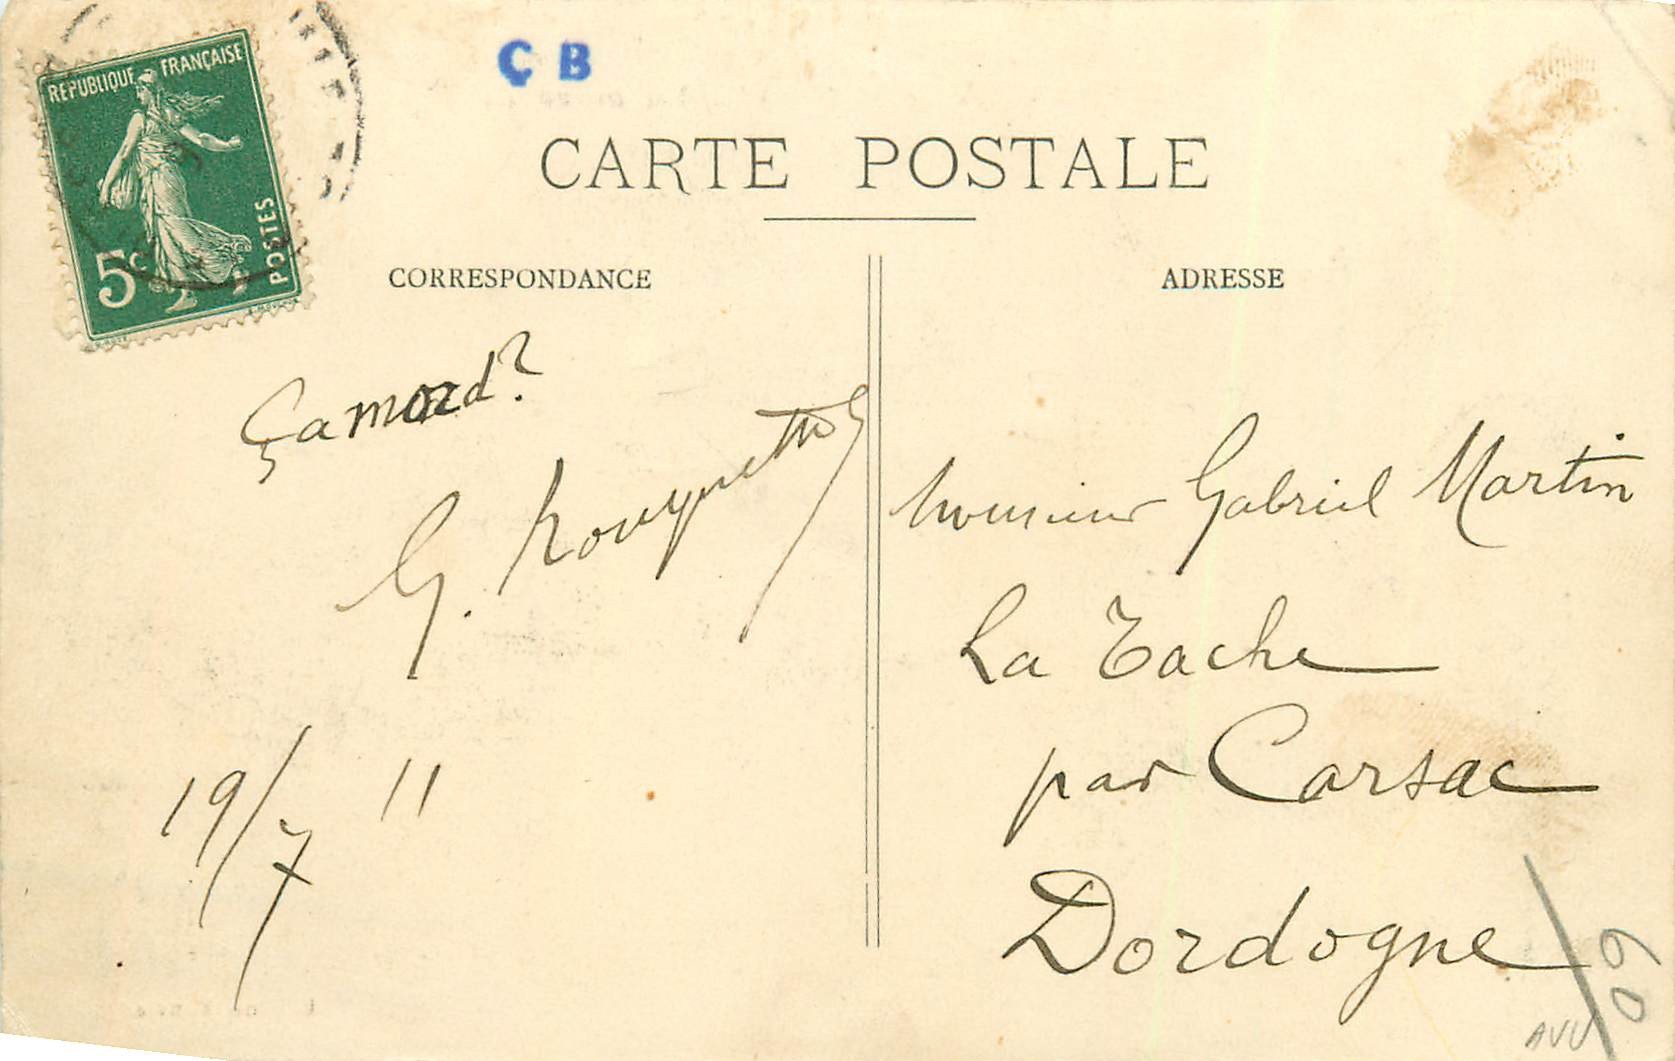 Ç B
RÉPUBLIQUE FRANÇAISE
POSTES
5c
CARTE POSTALE
CORRESPONDANCE
ADRESSE
Ça mord?
G. Rouquette
19/7 11
Monsieur Gabriel Martin
La Tache
par Carsac
Dordogne
09
AVU